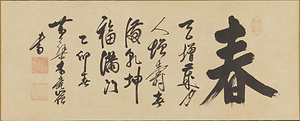 春
天增歲月
人增壽春
滿乾坤
福滿門
乙卯春
黃檗木菴
書